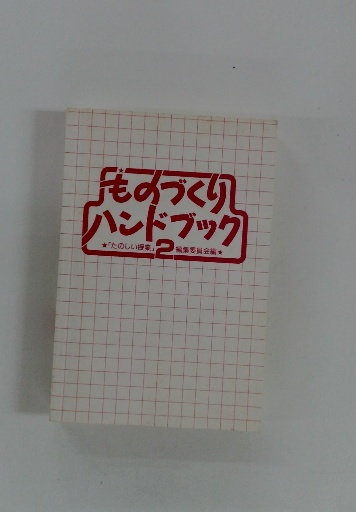 ものづくり
ハンドブック
★「たのしい授業」2編集委員会編★